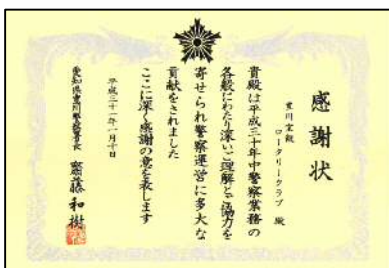 感謝状
豊川宝飯
ロータリークラブ 殿
貴殿は平成三十年中警察業務の
各般にわたり深いご理解とご協力を
寄せられ警察運営に多大な
貢献をされました
ここに深く感謝の意を表します
平成三十一年一月十日
愛知県豊川警察署長 齋藤和樹